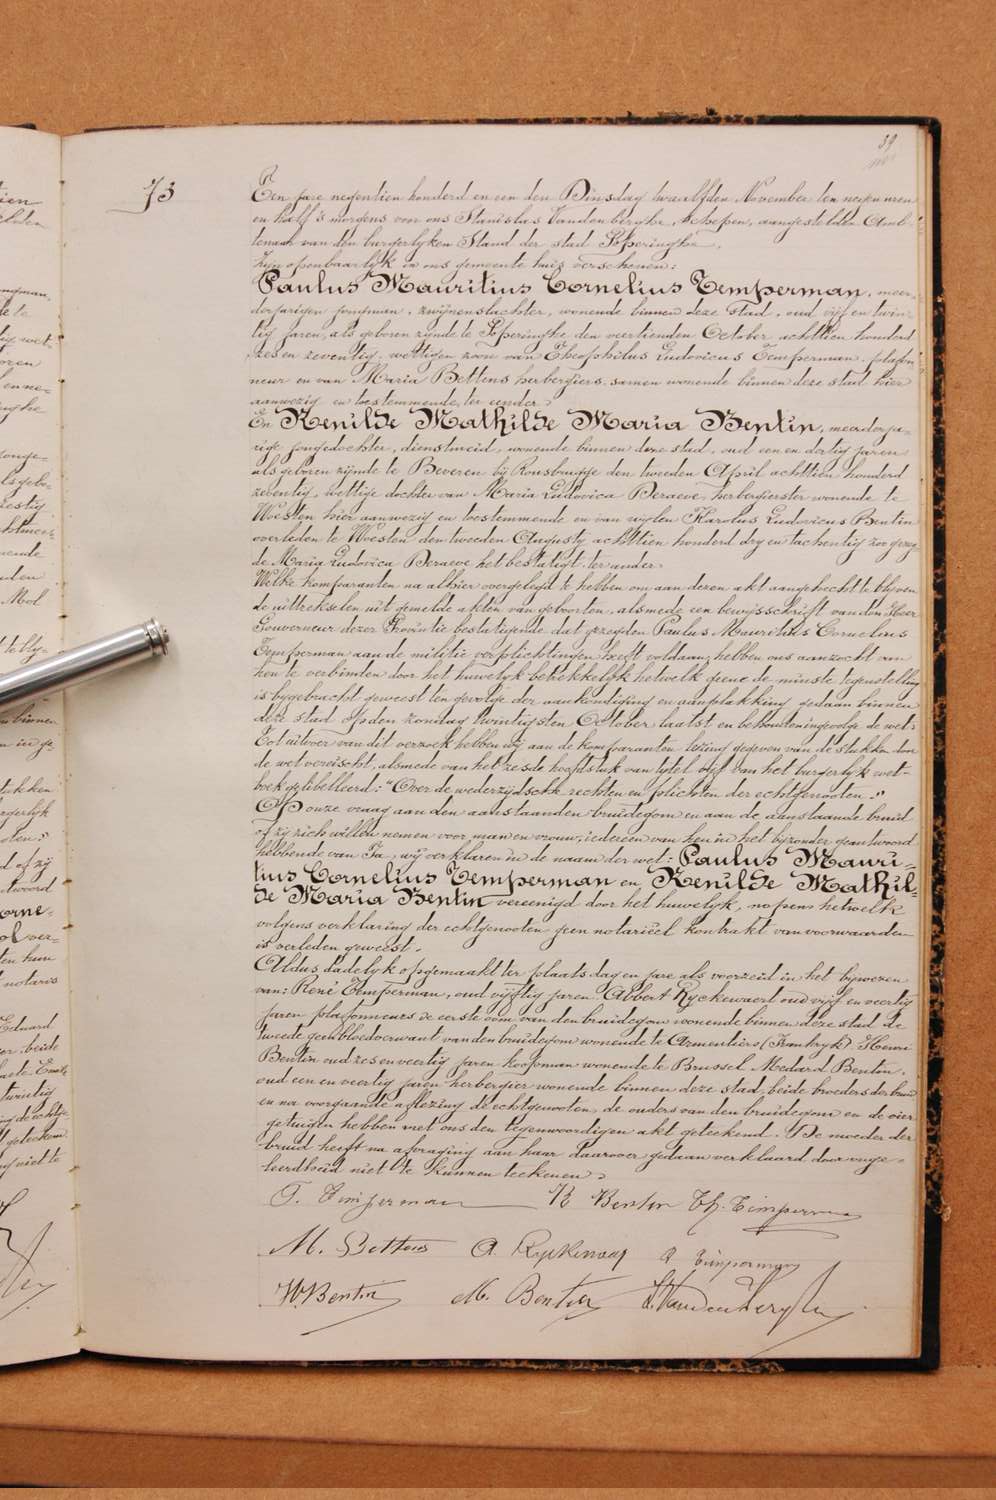 39
73
Ten jare negentien honderd en een den Dinsdag twaalfden November ten negen uren
en half 's morgens voor ons Stanislas Vanden berghe, schepen, aangestelden Amb-
tenaar van den burgerlyken Stand der stad Poperinghe,
zyn openbaarlyk in ons gemeente huis verschenen:
Paulus Mauritius Cornelius Temperman, meer-
derjarigen jongman, zwijnenslachter, wonende binnen deze stad, oud vijf en twin-
tig jaren, als geboren zijnde te Poperinghe den veertienden October achttien honderd
zes en zeventig, wettigen zoon van Theophilus Ludovicus Temperman, plafon-
neur en van Maria Bettens herbergiers, samen wonende binnen deze stad hier
aanwezig en toestemmende, ter eender;
En Renilde Mathilde Maria Bentin, meerderja-
rige jongedochter, dienstmeid, wonende binnen deze stad, oud een en dertig jaren
als geboren zijnde te Beveren bij Rousbrugge den tweeden April achttien honderd
zeventig, wettige dochter van Maria Ludovica Deraeve, herbergierster wonende te
Woesten hier aanwezig en toestemmende en van wylen Karolus Ludovicus Bentin
overleden te Woesten den tweeden Augusty achttien honderd dry en tachentig zoo gezeg-
de Maria Ludovica Deraeve het bestatigt, ter ander;
Welke komparanten na alhier overgelegd te hebben om aan dezen akt aangehecht te blyven
de uittrekselen uit gemelde akten van geboorten, alsmede een bewysschrift van den Heer
Gouverneur dezer Provintie bestatigende dat gezegden Paulus Mauritius Cornelius
Temperman aan de militie verplichtingen heeft voldaan, hebben ons aanzocht van
hen te verbinden door het huwelyk betrekkelyk hetwelk geene de minste tegenstelling
is bygebracht geweest ten gevolge der aankondiging en aanplakking gedaan binnen
deze stad op den zondag twintigsten October laatst en behouden ingevolge de wet;
Tot uitvoer van dit verzoek hebben wij aan de komparanten lezing gegeven van de stukken door
de wet vereischt, alsmede van het zesde hoofdstuk van tytel vijf van het burgerlyk wet-
boek gelibelleerd: "Over de wederzijdsche rechten en plichten der echtgenooten."
Op onze vraag aan den aanstaanden bruidegom en aan de aanstaande bruid
of zij zich willen nemen voor man en vrouw, iedereen van hen in het bijzonder geantwoord
hebbende van Ja, wij verklaren in de naam der wet: Paulus Mauri-
tius Cornelius Temperman en Renilde Mathil-
de Maria Bentin vereenigd door het huwelyk, nopens hetwelk
volgens verklaring der echtgenooten geen notariëel kontrakt van voorwaarden
is verleden geweest.
Aldus dadelyk opgemaakt ter plaats dag en jare als voorzeid in het bijwezen
van: René Temperman, oud vijftig jaren, Albert Ryckewaert oud vijf en veertig
jaren plafonneurs de eerste oom van den bruidegom wonende binnen deze stad de
tweede geen bloedverwant van den bruidegom wonende te Armentiers (Frankryk) Henri
Bentin oud zes en veertig jaren koopman wonende te Brussel Medard Bentin,
oud een en veertig jaren herbergier wonende binnen deze stad, beide broeders der bruid
en na voorgaande aflezing de echtgenooten, de ouders van den bruidegom en de vier
getuigen hebben met ons den tegenwoordigen akt geteekend. De moeder der
bruid heeft na afvraging aan haar daarover gedaan verklaard door onge-
leerdheid niet te kunnen teekenen.
P. Temperman R Bentin Th. Temperman
M. Bettens A. Ryckewaert R Temperman
H Bentin M. Bentin S. Vandenberghe